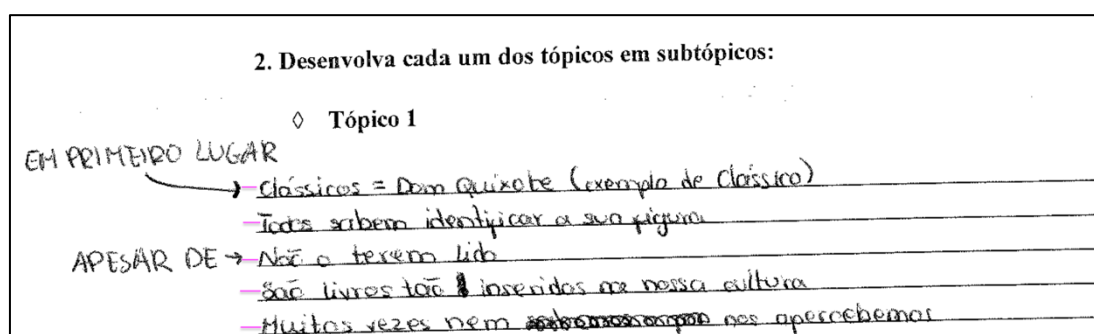 2. Desenvolva cada um dos tópicos em subtópicos:
◊ Tópico 1
EM PRIMEIRO LUGAR
- Clássicos = Dom Quixote (exemplo de Clássico)
- Todos sabem identificar a sua figura
APESAR DE → - Não o terem lido
- São livros tão inseridos na nossa cultura
- Muitas vezes nem nos apercebemos